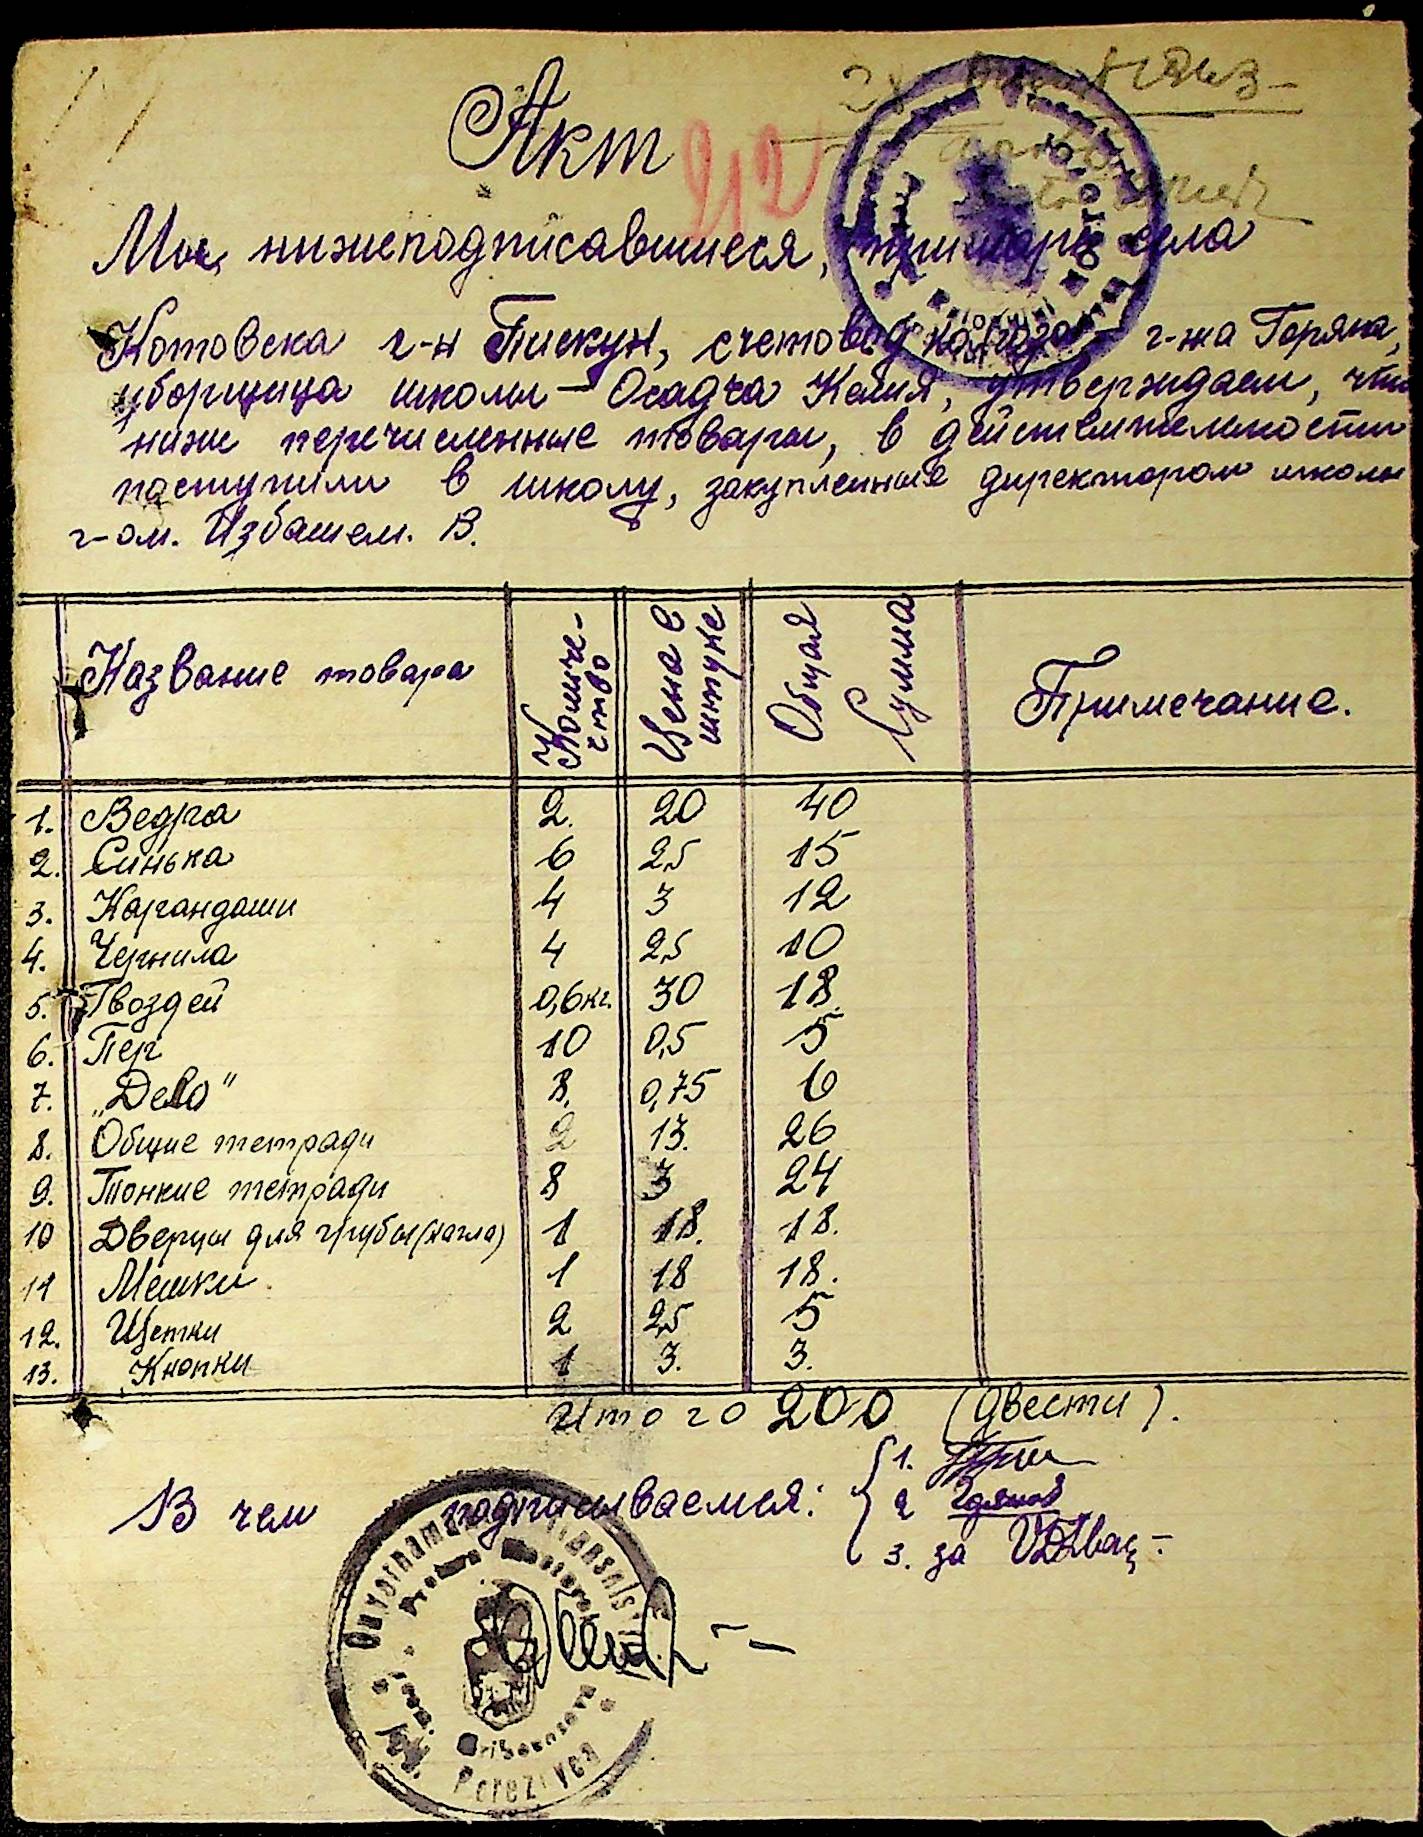 Акт
212
Мы, нижеподписавшиеся, примарь села
Котовска г-н Пискун, счетовод колхоза – г-жа Горяна,
уборщица школы – Осадча Келия, утверждаем, что
ниже перечисленные товары, в действительности
поступили в школу, закупленные директором школы
г-ом. Избашем. В.
Название товара Количе-ство Цена в штуке Общая Сумма Примечание.
1. Ведра 2. 20 40
2. Синька 6 2,5 15
3. Карандаши 4 3 12
4. Чернила 4 2,5 10
5. Гвоздей 0,6 кг. 30 18.
6. Пер 10 0,5 5
7. „Дело" 8. 0,75 6
8. Общие тетради 2 13. 26
9. Тонкие тетради 8 3 24
10 Дверцы для грубы 1 18. 18.
11 Мешки 1 18 18.
12. Щетки 2 2,5 5
13. Кнопки 1 3. 3.
Итого 200 (двести).
В чем подписываемся: 1.
2
3. за
Guvernamantul Transnistriei
Berezovca